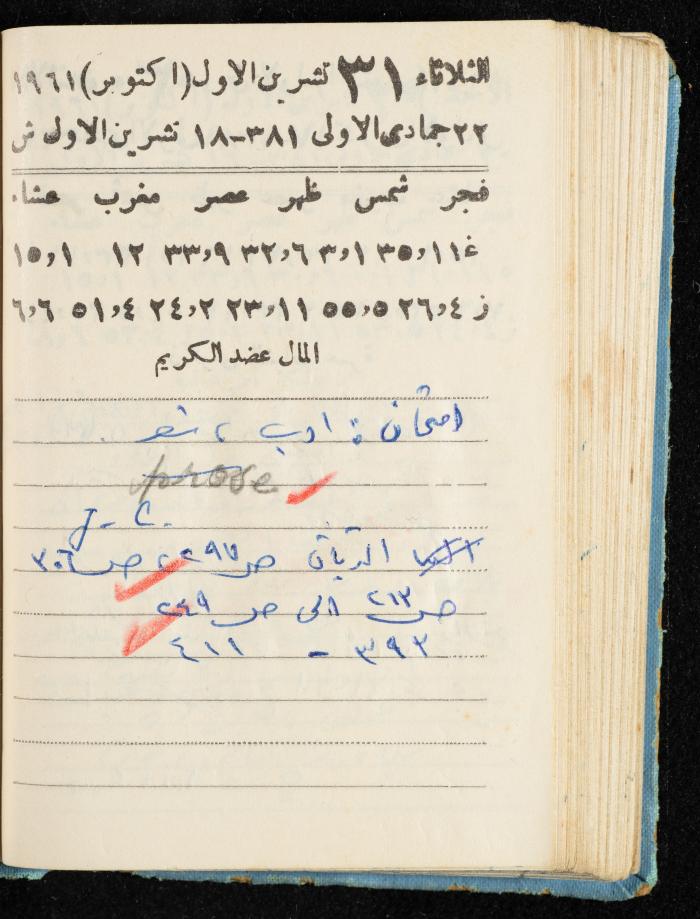 الثلاثاء ٣١ تشرين الاول (اكتوبر) ١٩٦١
٢٢ جمادى الاولى ٣٨١-١٨ تشرين الاول ش
فجر شمس ظهر عصر مغرب عشاء
غ ١١,٣٥ ١,٣ ٦,٣٢ ٩,٣٣ ١٢ ١,١٥
ز ٤,٢٦ ٥,٥٥ ١١,٢٣ ٢,٢٤ ٤,٥١ ٦,٦
المال عضد الكريم
امتحان : ادب ، شعر
prose
J. C.
ص ٢٩٧ ، ص ٣٠٦
ص ٢١٣ الى ص ٢٤٩
٣٩٣ - ٤١١